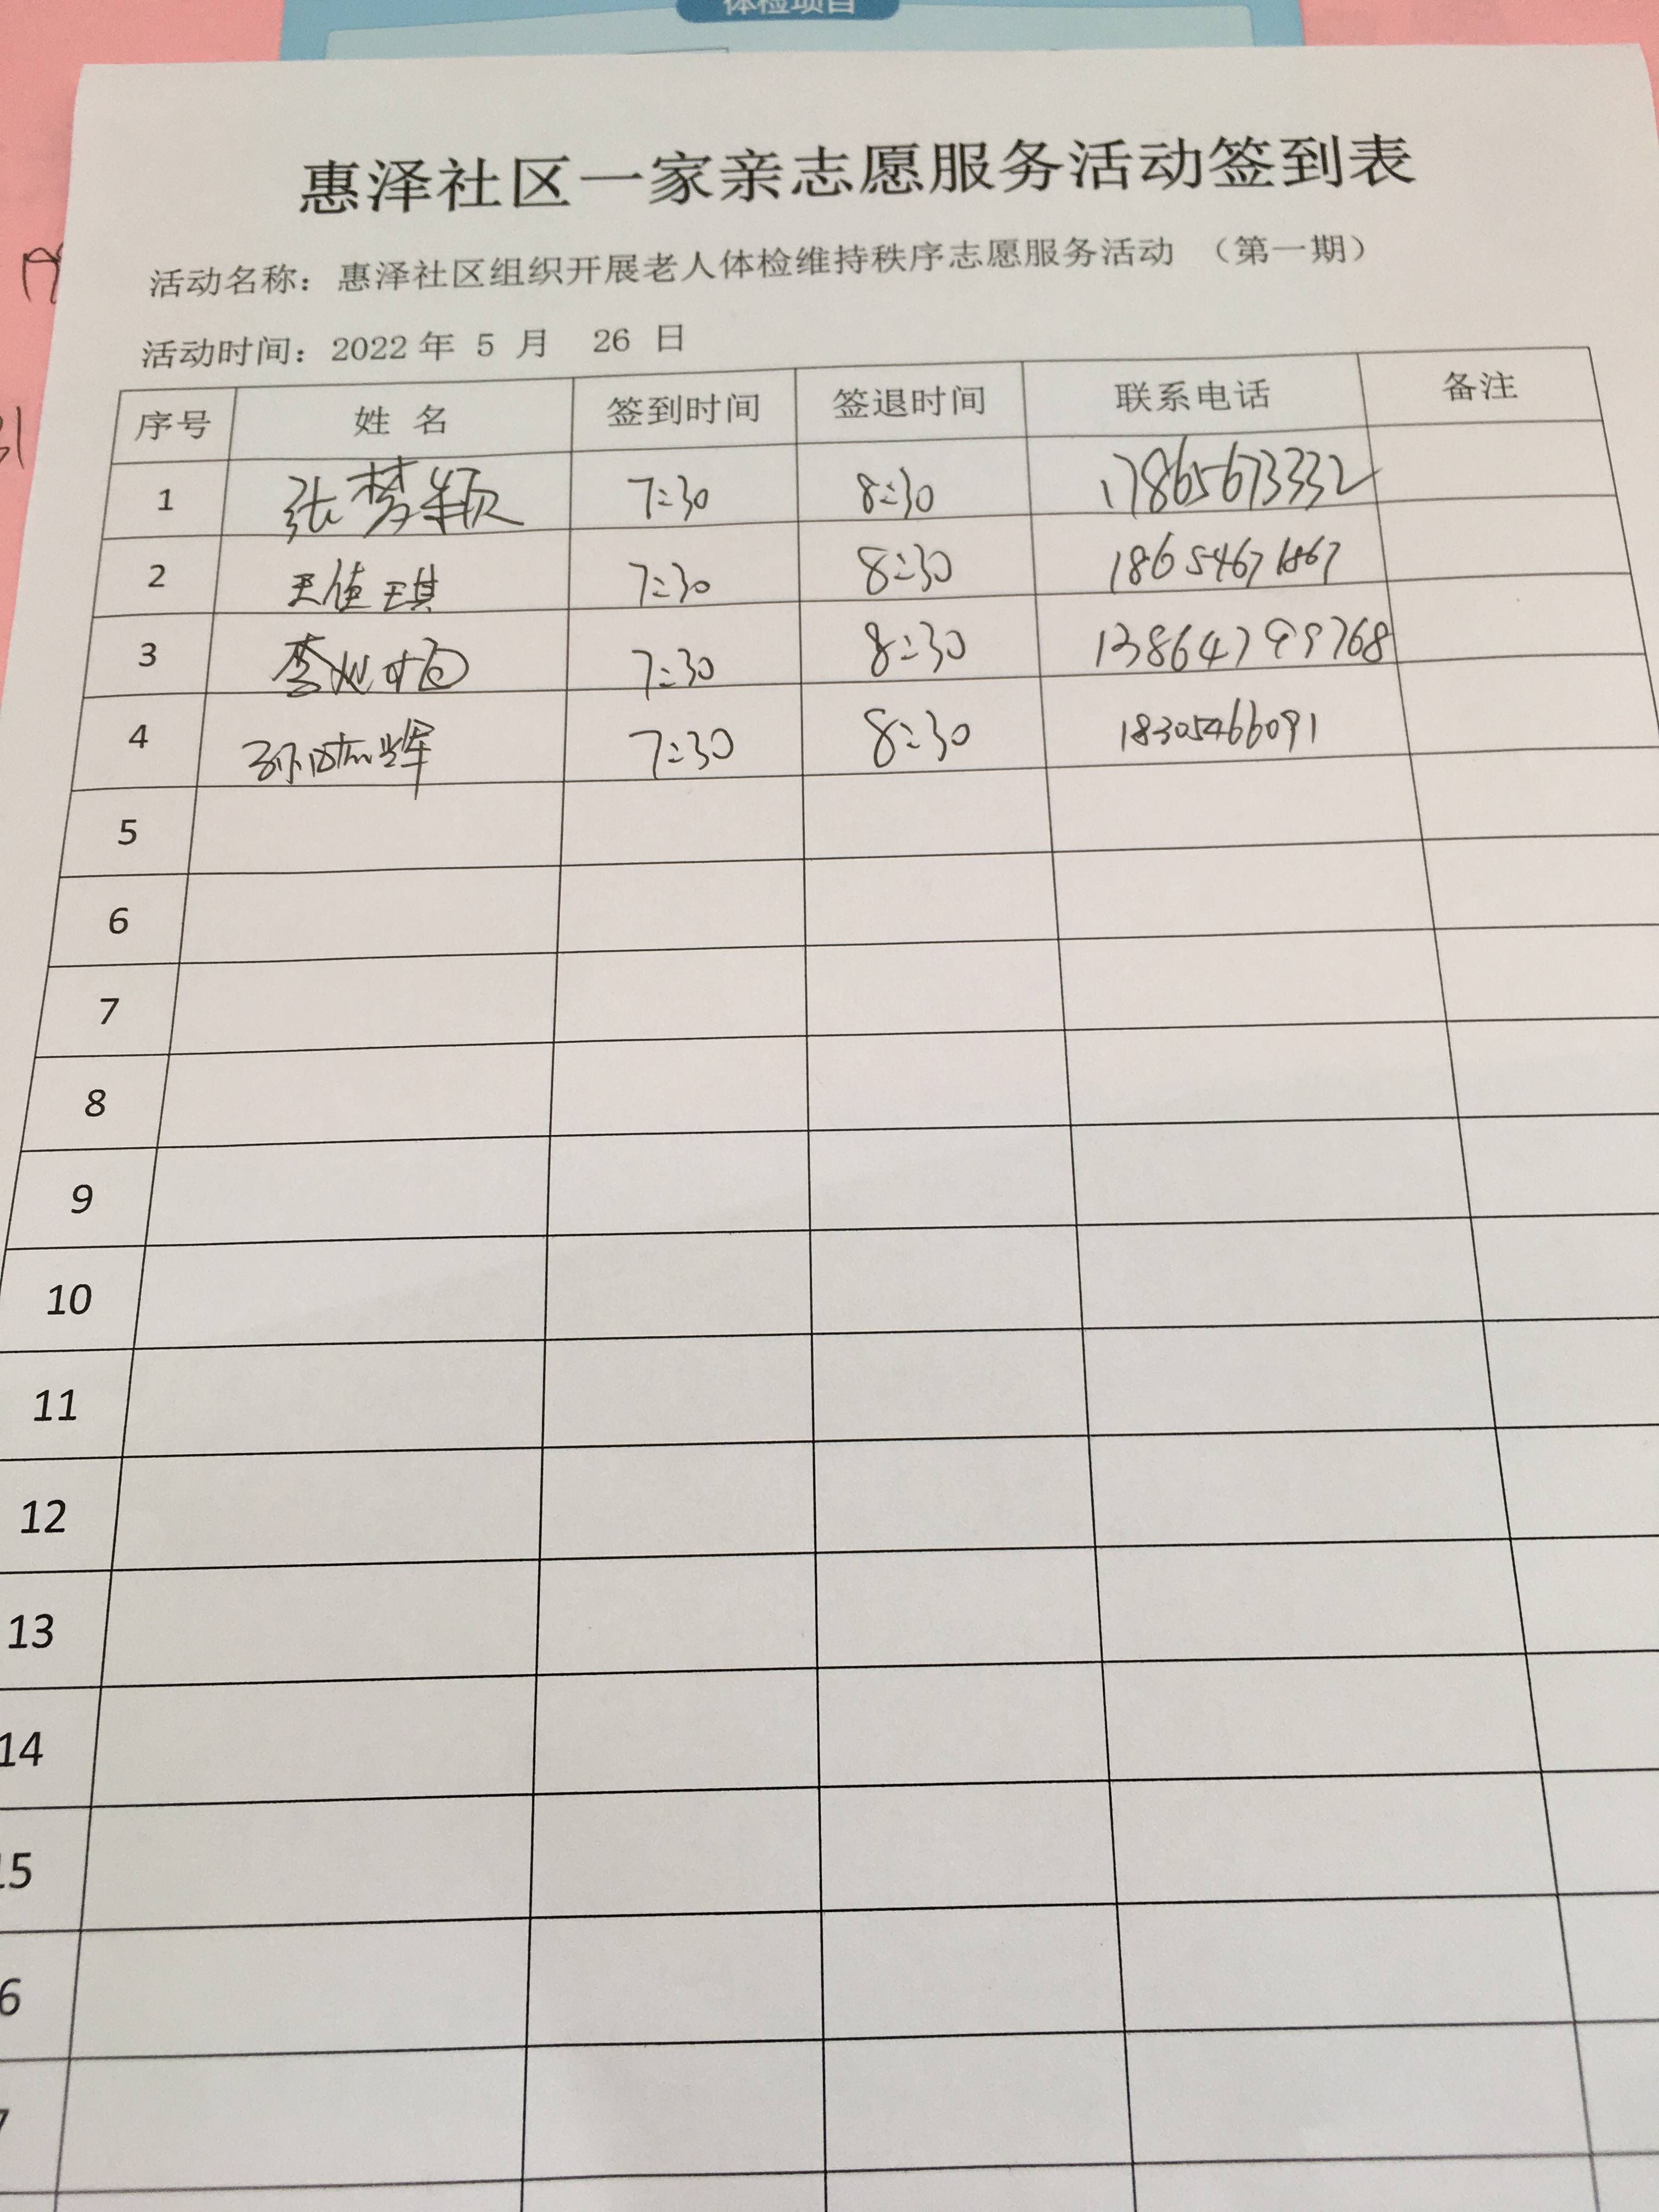 体检项目
惠泽社区一家亲志愿服务活动签到表
活动名称：惠泽社区组织开展老人体检维持秩序志愿服务活动 （第一期）
活动时间：2022 年 5 月 26 日
序号 姓 名 签到时间 签退时间 联系电话 备注
1 张梦颖 7:30 8:30 17865673332
2 王值琪 7:30 8:30 18654671867
3 李 7:30 8:30 13864799768
4 孙 辉 7:30 8:30 18305466091
5
6
7
8
9
10
11
12
13
14
15
6
7